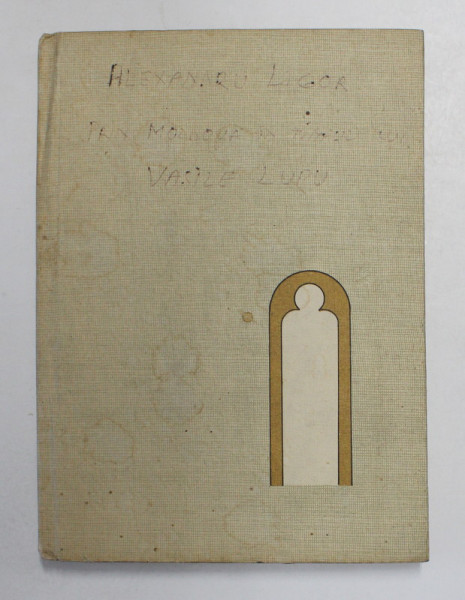 ALEXANDRU LIGOR
PRIN MOLDOVA
VASILE LUPU